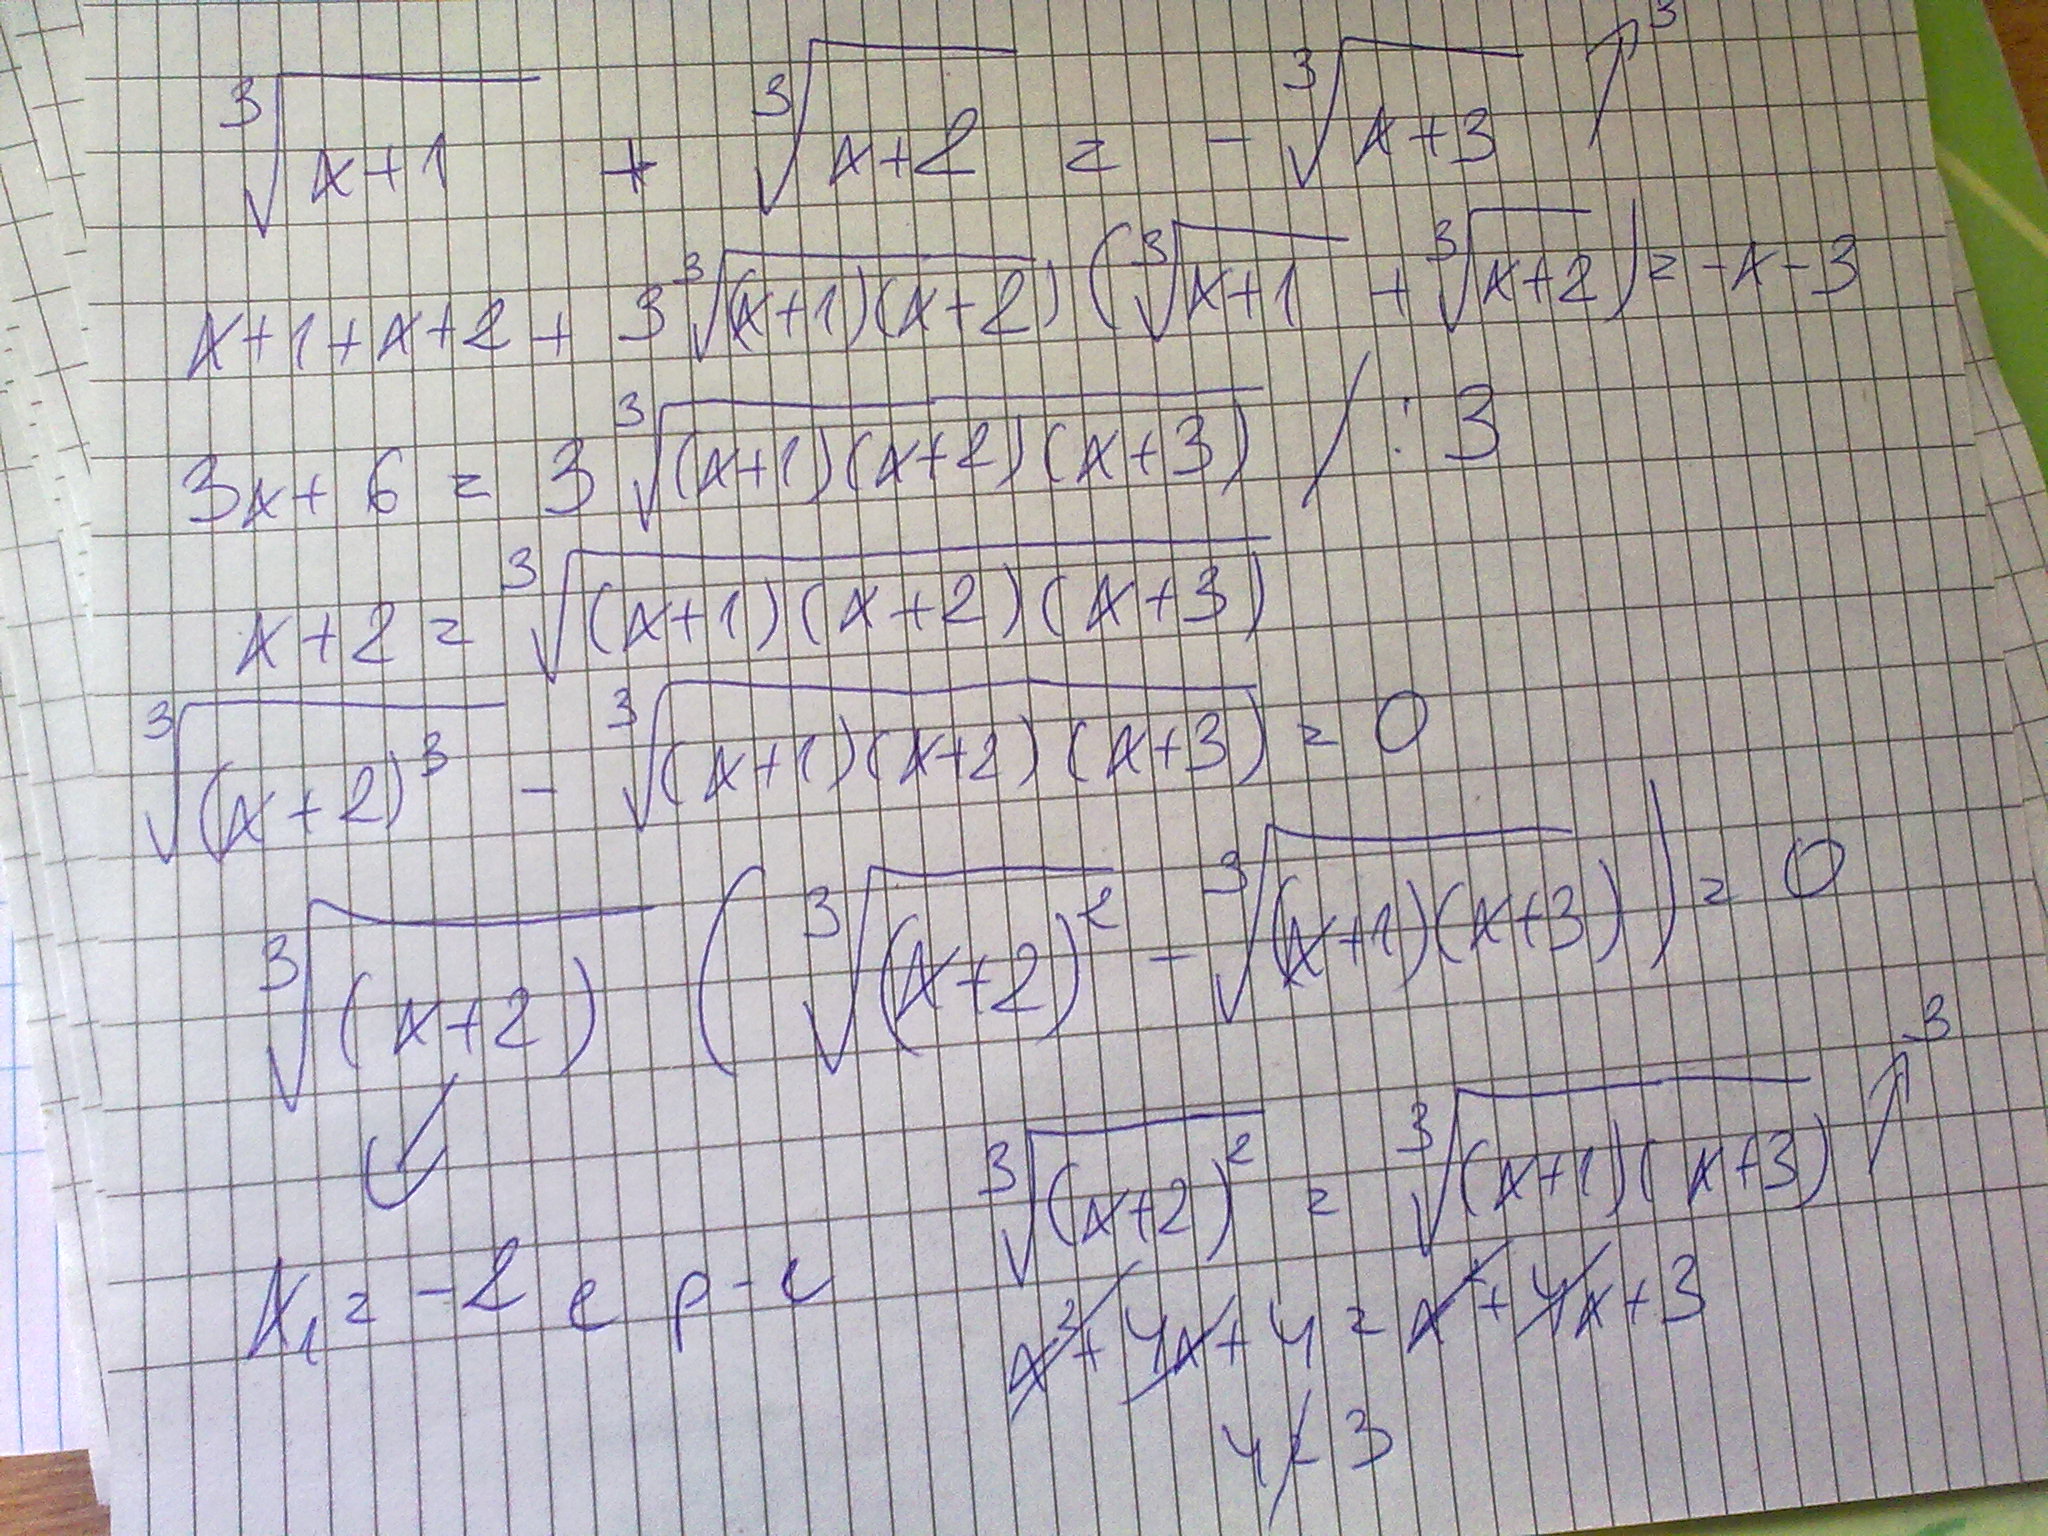 ∛(x+1) + ∛(x+2) = -∛(x+3) ↗³
x+1+x+2+3∛((x+1)(x+2)) (∛(x+1) + ∛(x+2)) = -x-3
3x+6 = 3∛((x+1)(x+2)(x+3)) / : 3
x+2 = ∛((x+1)(x+2)(x+3))
∛((x+2)³) - ∛((x+1)(x+2)(x+3)) = 0
∛((x+2)) (∛((x+2)²) - ∛((x+1)(x+3))) = 0
∛((x+2)²) = ∛((x+1)(x+3)) ↗³
x₁ = -2 е р-е
x²+4x+4 = x²+4x+3
4 ≠ 3